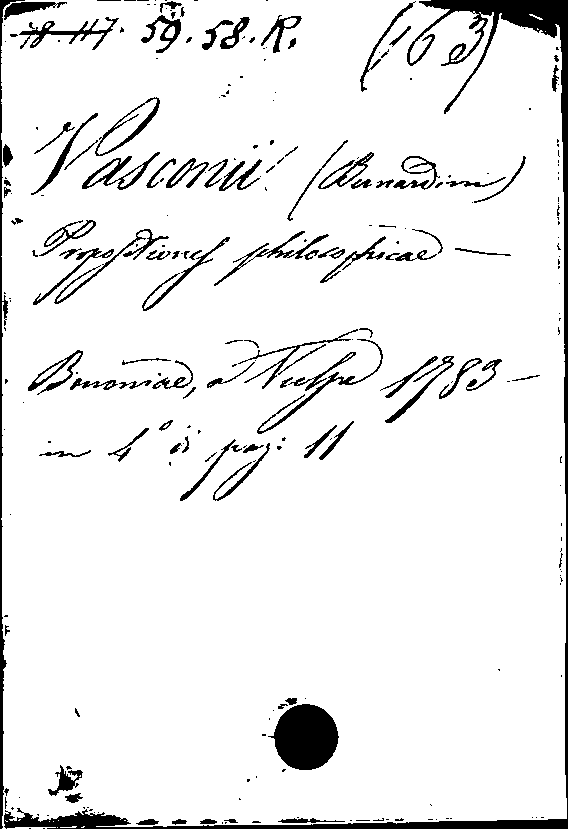 78 117. 59. 58. R. (16e3)
Vasconii (Bernardini)
Propositiones philosophicae —
Bononiae, a Vulpe 1783 —
in 4° di pag: 11